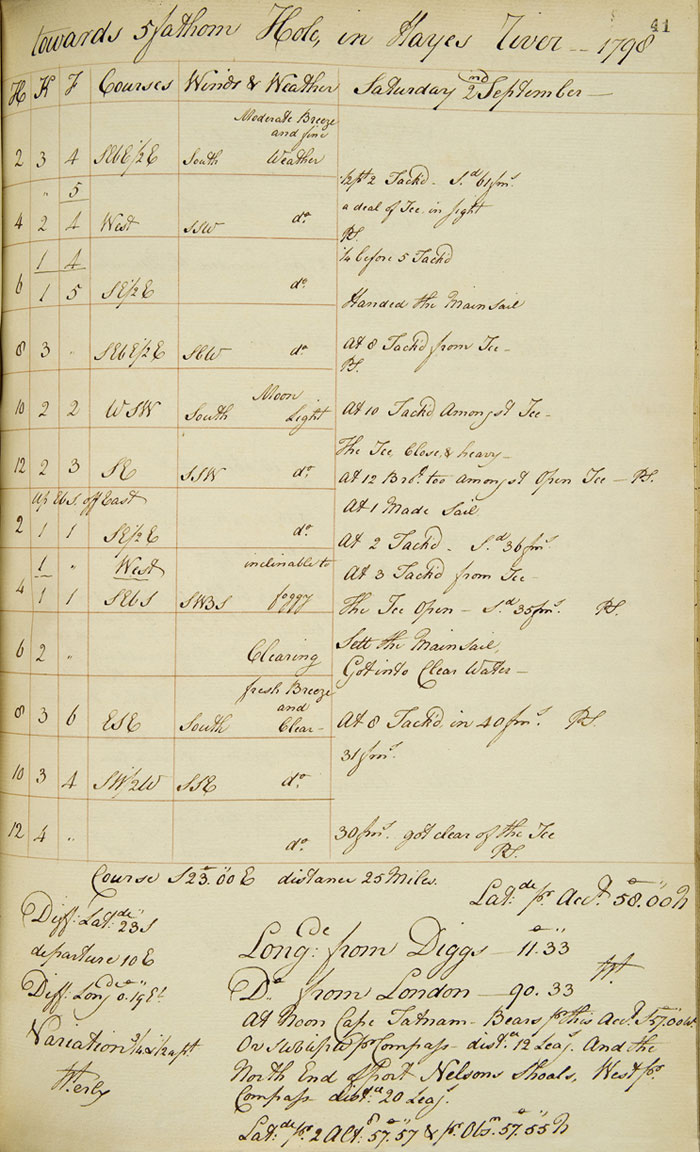 41
towards 5 fathom Hole, in Hayes River -- 1798
H K F Courses Winds & Weather Saturday 2nd September —
Moderate Breeze
and fine
2 3 4 SEbE½E South Weather
" 5 ½ pt 2 Tack'd - S.d 61 fms.
4 2 4 West SSW do a deal of Ice in sight
RS.
1 4 ¼ before 5 Tackd
6 1 5 SE½E do
Handed the Mainsail
8 3 " SEbE½E SbW do At 8 Tack'd from Ice -
RS.
Moon
10 2 2 WSW South Light At 10 Tack'd Amongst Ice -
The Ice Close, & heavy -
12 2 3 SE SSW do At 12 Bro.t too amongst Open Ice - RS.
Up EbS. off East At 1 Made Sail
2 1 1 SE½E do At 2 Tack'd - S.d 36 fms.
1 " West inclinable to At 3 Tack'd from Ice -
4 1 1 SEbS SWBS foggy The Ice Open - S.d 35 fms. RS.
6 2 " Clearing Sett the Mainsail,
Got into Clear Water -
fresh Breeze
and
8 3 6 ESE South Clear - At 8 Tack'd in 40 fms. RS.
31 fms.
10 3 4 SW½W SSE do
12 4 " do 30 fms. got clear of the Ice
RS.
Course S 23°.00" E distance 25 Miles.
Lat:de pr Acct. 58°.00" N
Diff: Lat:de 23 S
departure 10 E
Diff: Longde 0.19 Et.
Variation
Long:de from Diggs — 11°.33"
Do. from London — 90.33
At Noon Cape Tatnam - Bears pr this Acct. S 57.00 W.
Or pr Compass - dist.ce 12 Leag. And the
North End of Port Nelsons Shoals, West pr.
Compass dist.ce 20 Leag.
Lat:de pr 2 Alt.s 57°.57" & pr. Obsn. 57°.55" N